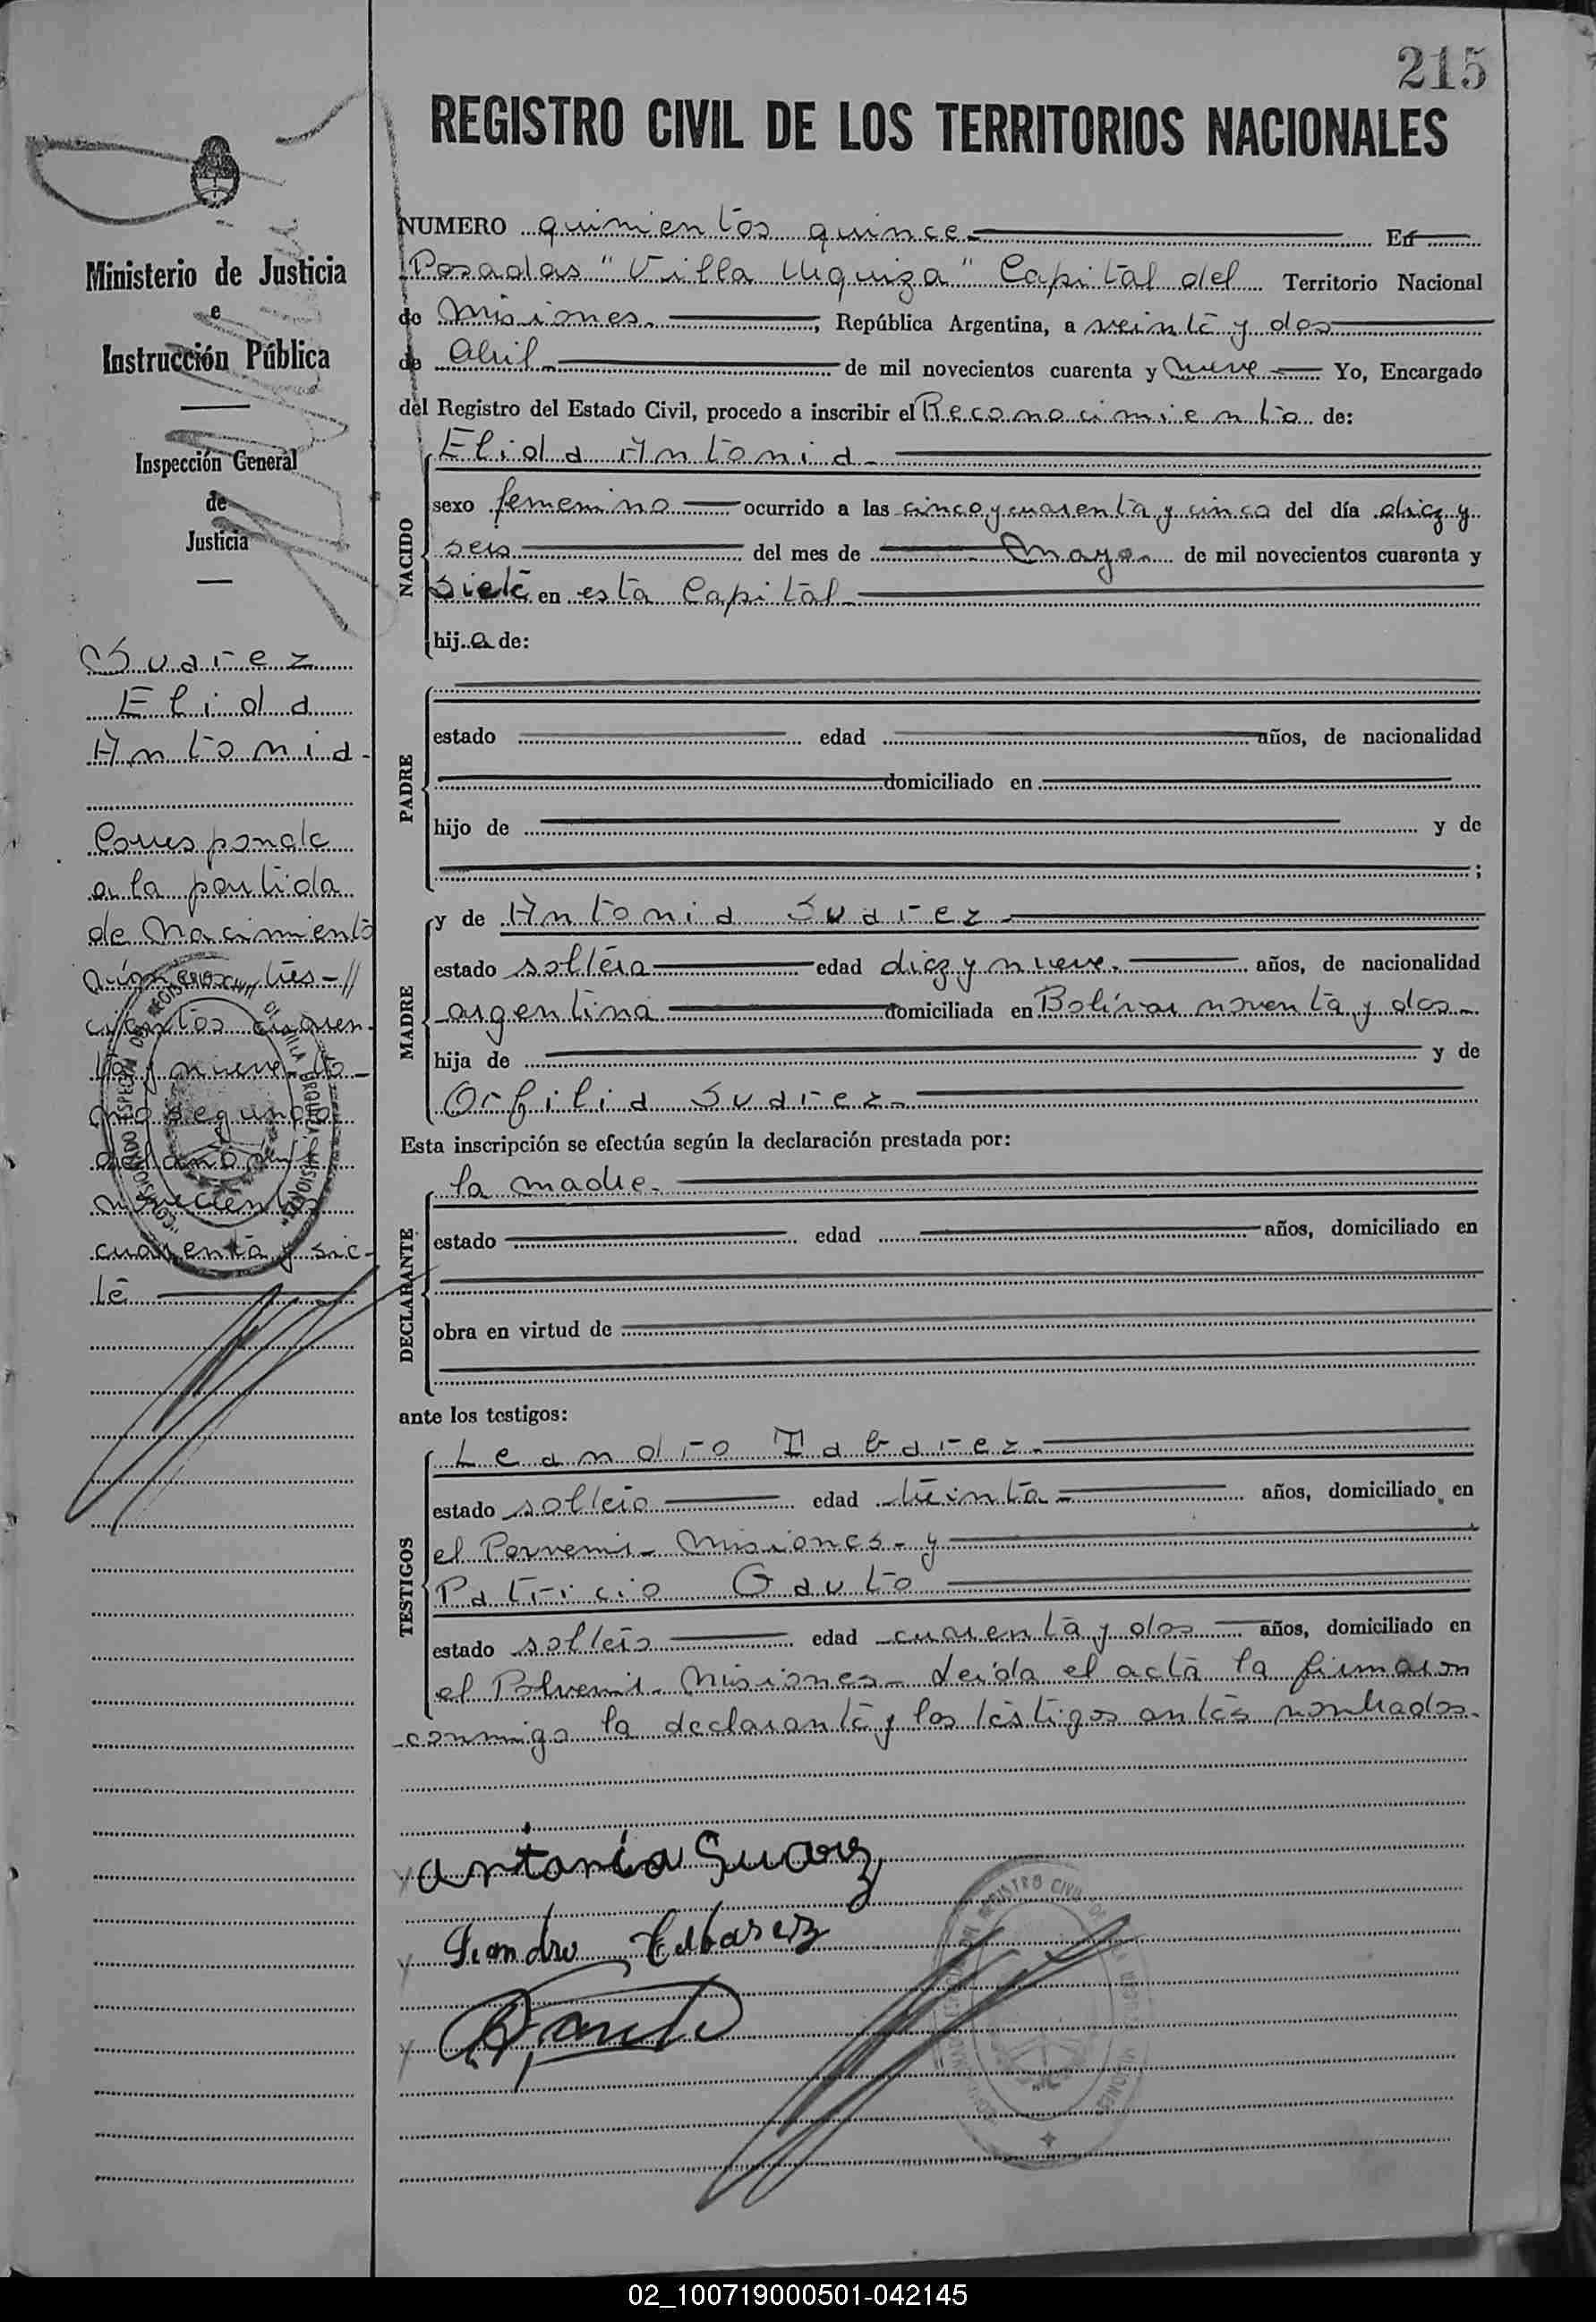 215
REGISTRO CIVIL DE LOS TERRITORIOS NACIONALES
Ministerio de Justicia
e
Instrucción Pública
Inspección General
de
Justicia
Suarez
Elida
Antonia-
Corresponde
a la partida
de Nacimiento
número tres-//
cientos cuaren-
ta y nueve to-
mo segundo
del año mil
novecientos
cuarenta y sie-
te
NUMERO quinientos quince- En
Posadas "Villa Urquiza" Capital del Territorio Nacional
de Misiones-, República Argentina, a veinte y dos
de Abril- de mil novecientos cuarenta y nueve Yo, Encargado
del Registro del Estado Civil, procedo a inscribir el Reconocimiento de:
NACIDO
Elida Antonia-
sexo femenino ocurrido a las cinco y cuarenta y cinco del día diez y
seis del mes de Mayo- de mil novecientos cuarenta y
siete en esta Capital-
hija de:
PADRE
estado edad años, de nacionalidad
domiciliado en
hijo de y de
;
MADRE
y de Antonia Suarez-
estado soltera edad diez y nueve- años, de nacionalidad
argentina domiciliada en Bolívar noventa y dos-
hija de y de
Orfilia Suarez-
Esta inscripción se efectúa según la declaración prestada por:
DECLARANTE
la madre-
estado edad años, domiciliado en
obra en virtud de
ante los testigos:
TESTIGOS
Leandro Tabarez-
estado soltero edad treinta- años, domiciliado en
el Porvenir- Misiones- y
Patricio Gauto
estado soltero edad cuarenta y dos años, domiciliado en
el Polvenir- Misiones- Leída el acta la firmaron
conmigo la declarante y los testigos antes nombrados-
Antonia Suarez
Leandro Tabarez
P. Gauto
02_100719000501-042145